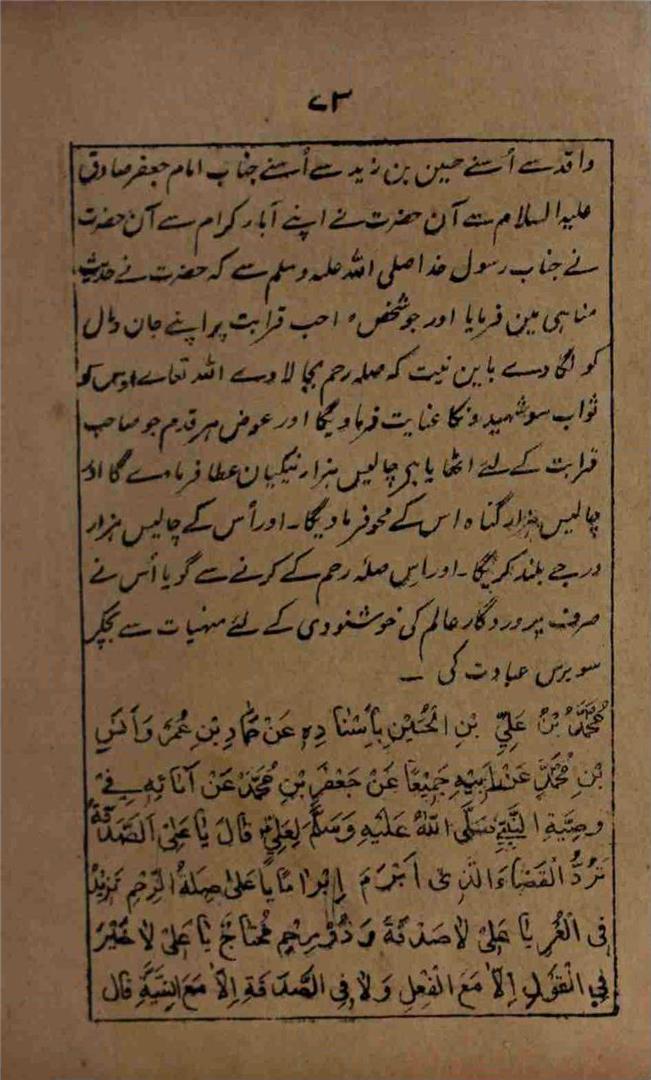 ٧٣
واقد سے اُسنے حسین بن زید سے اُسنے جناب امام جعفر صادق
علیہ السلام سے آن حضرت نے اپنے آبار کرام سے آن حضرت
نے جناب رسول خدا صلی اللہ علیہ وسلم سے کہ حضرت نے حدیث
مناہی مین فرمایا اور جو شخص صاحب قرابت پر اپنے جان ومال
کو لگا دے باین نیت کہ صلہ رحم بجا لاوے اللہ تعالے اوس کو
ثواب سو شہیدونکا عنایت فرماویگا اور عوض ہر قدم جو صاحب
قرابت کے لئے اٹھایا ہے چالیس ہزار نیکیان عطا فرماے گا اور
چالیس ہزار گناہ اس کے محو فرماویگا ۔ اور اُس کے چالیس ہزار
درجے بلند کریگا ۔ اور اِس صلہ رحم کے کرنے سے گویا اُس نے
صرف پروردگار عالم کی خوشنودی کے لئے منہیات سے بچکر
سو برس عبادت کی ۔
مُحَمَّدُ بْنُ عَلِيِّ بْنِ الْحُسَيْنِ بِاَسْنَادِهٖ عَنْ حَمَّادِ بْنِ عُمَرَ وَاَنَسِ
بْنِ مُحَمَّدٍ عَنْ اَبِيْهِ جَمِيْعًا عَنْ جَعْفَرِ بْنِ مُحَمَّدٍ عَنْ آبَائِهِ فِيْ
وَصِيَّةِ النَّبِيِّ صَلَّى اللّٰهُ عَلَيْهِ وَسَلَّمَ لِعَلِيٍّ قَالَ يَا عَلِيُّ اَلصَّدَقَةُ
تَرُدُّ الْقَضَاءَ الَّذِيْ اُبْرِمَ اِبْرَامًا يَا عَلِيُّ صِلَةُ الرَّحِمِ تَزِيْدُ
فِي الْعُمُرِ يَا عَلِيُّ لَا صَدَقَةَ وَذُوْ رَحِمٍ مُحْتَاجٌ يَا عَلِيُّ لَا خَيْرَ
فِي الْقَوْلِ اِلَّا مَعَ الْفِعْلِ وَلَا فِي الصَّدَقَةِ اِلَّا مَعَ النِّيَّةِ قَالَ